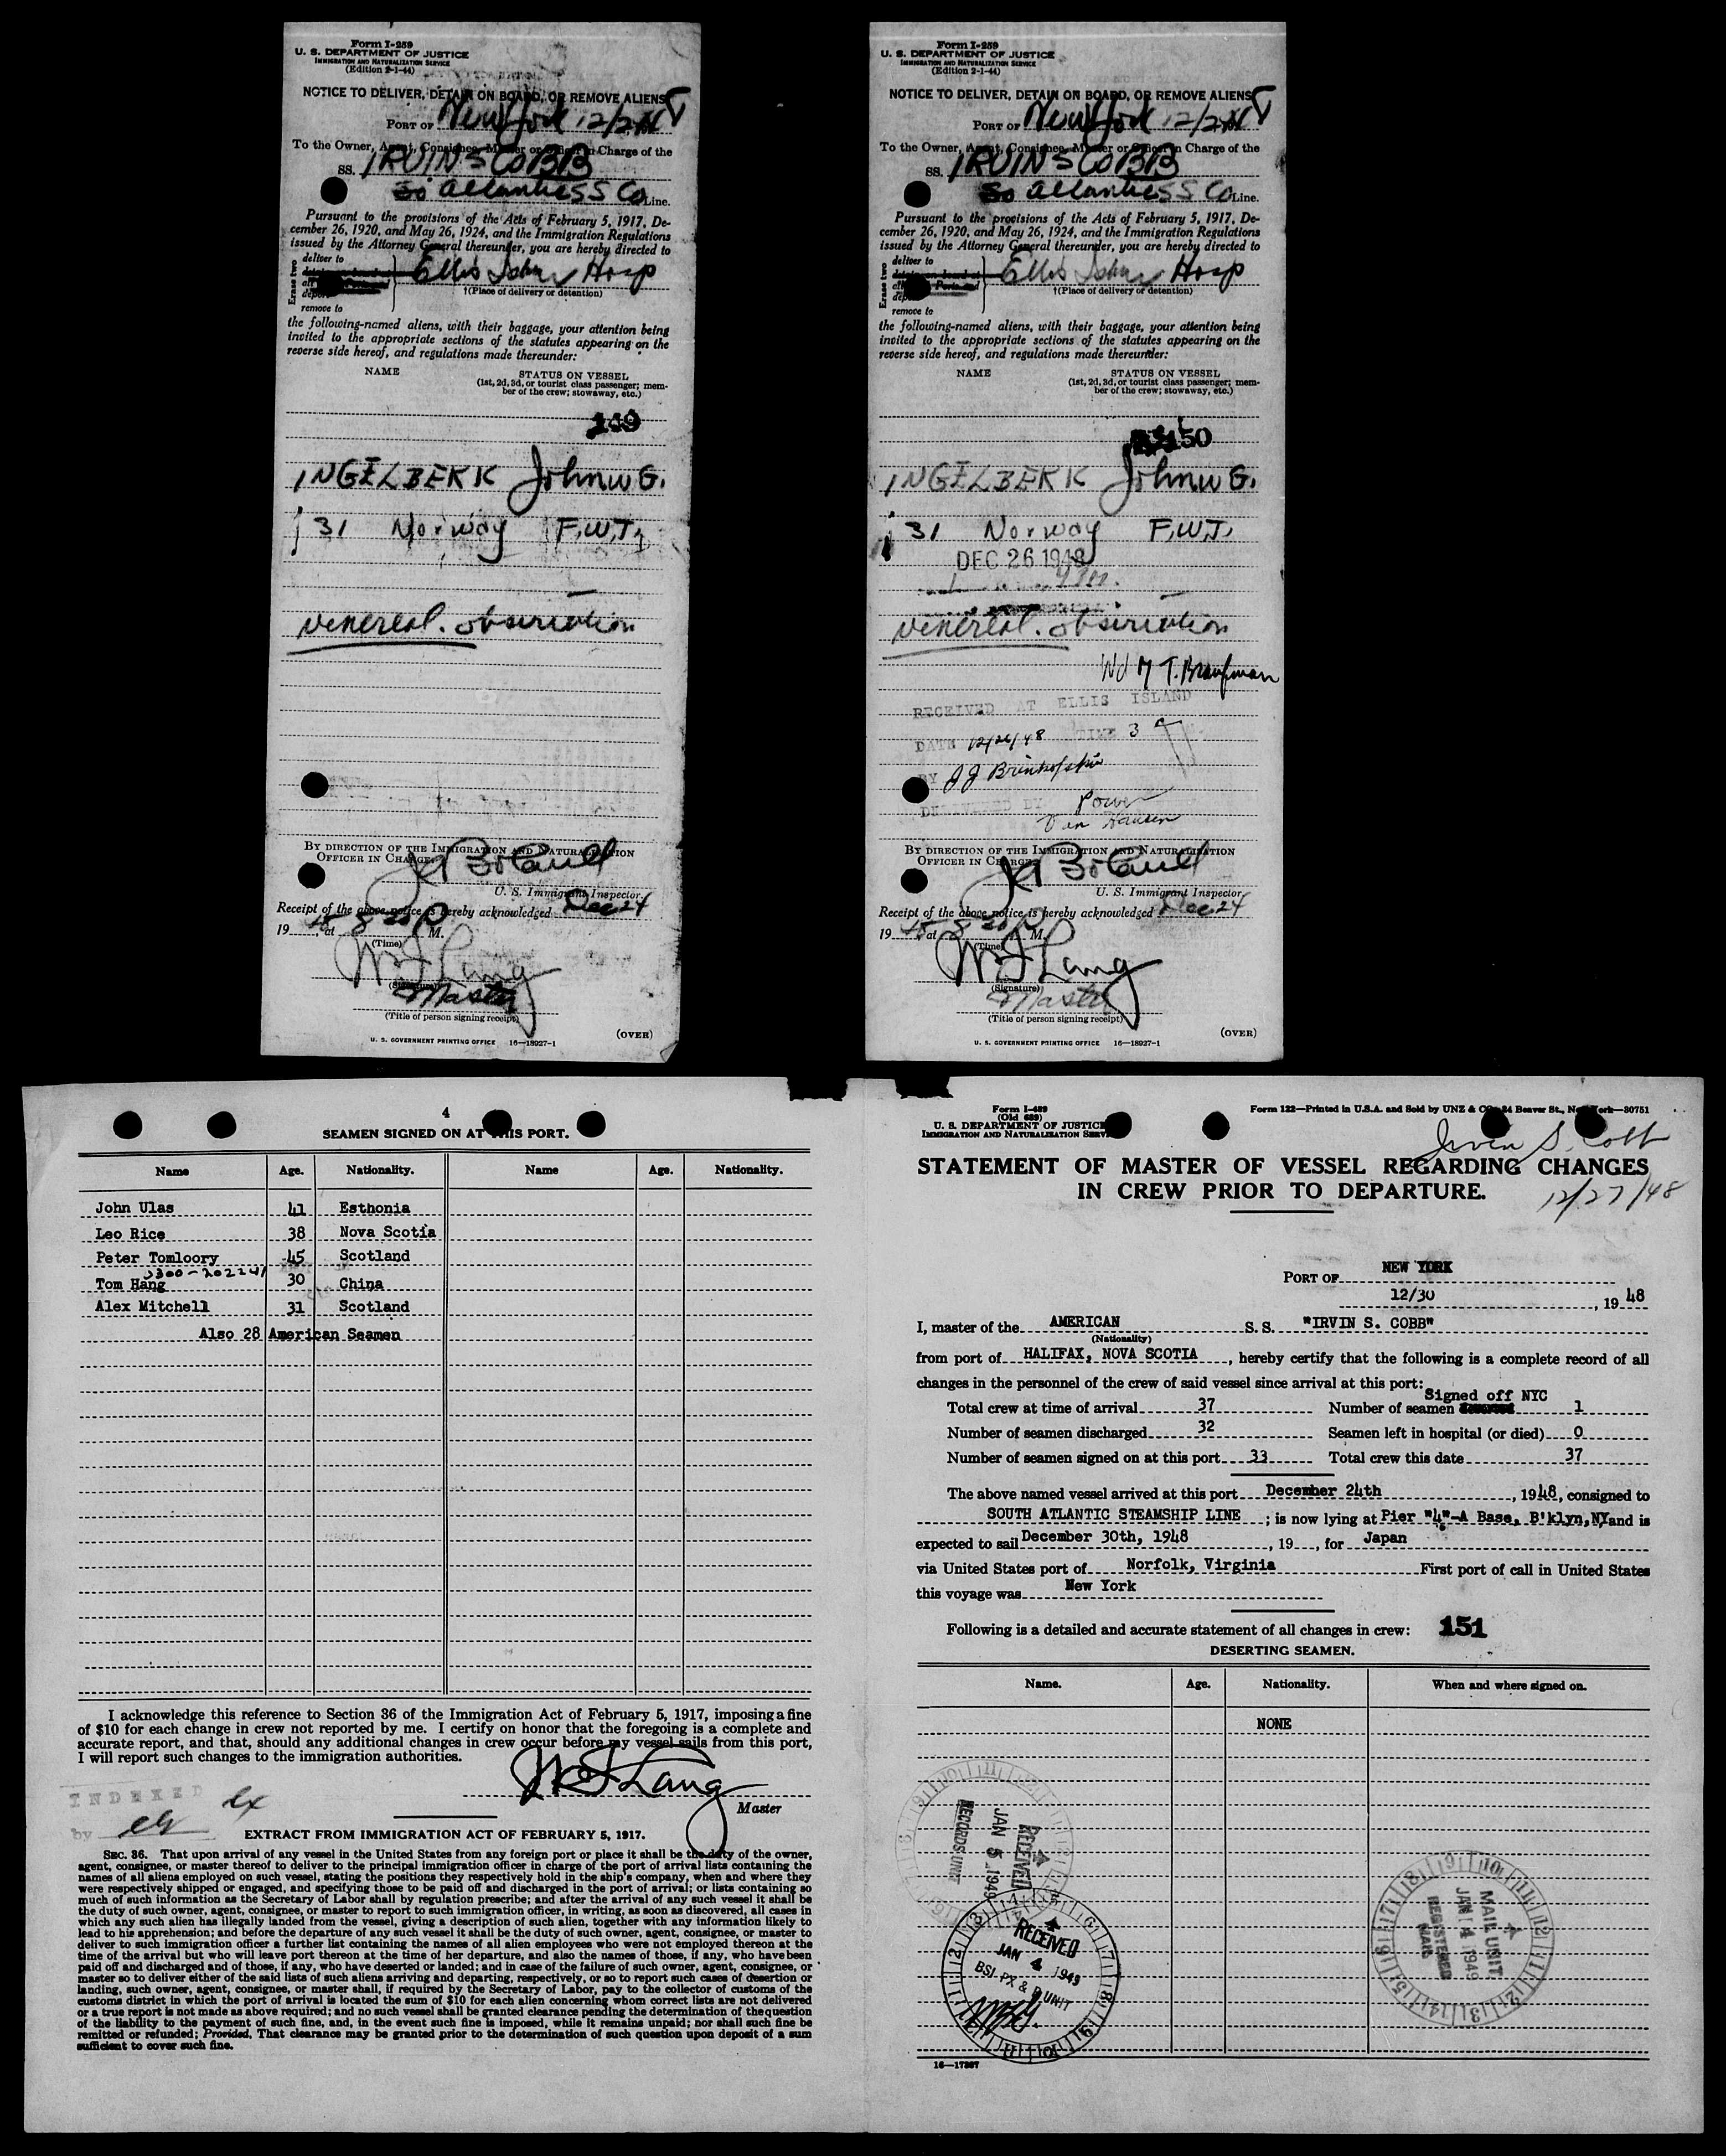 Form I-259
U. S. DEPARTMENT OF JUSTICE
IMMIGRATION AND NATURALIZATION SERVICE
(Edition 2-1-44)
NOTICE TO DELIVER, DETAIN ON BOARD, OR REMOVE ALIENS
PORT OF New York 12/24
To the Owner, Agent, Consignee, Master or Officer in Charge of the
SS. IRVIN S COBB
So Atlantic SS Co Line.
Pursuant to the provisions of the Acts of February 5, 1917, De-
cember 26, 1920, and May 26, 1924, and the Immigration Regulations
issued by the Attorney General thereunder, you are hereby directed to
Erase two
deliver to
Ellis Island Hosp
†(Place of delivery or detention)
remove to
the following-named aliens, with their baggage, your attention being
invited to the appropriate sections of the statutes appearing on the
reverse side hereof, and regulations made thereunder:
NAME STATUS ON VESSEL
(1st, 2d, 3d, or tourist class passenger; mem-
ber of the crew; stowaway, etc.)
149
INGELBEKK John G.
31 Norway F.W.T.
venereal. observation
BY DIRECTION OF THE IMMIGRATION AND NATURALIZATION
OFFICER IN CHARGE
U. S. Immigrant Inspector.
Receipt of the above notice is hereby acknowledged Dec 24
19 48, at 8 30 P M.
(Time)
W F Lang
(Signature)
Master
(Title of person signing receipt)
(OVER)
U. S. GOVERNMENT PRINTING OFFICE 16—18927-1
Form I-259
U. S. DEPARTMENT OF JUSTICE
IMMIGRATION AND NATURALIZATION SERVICE
(Edition 2-1-44)
NOTICE TO DELIVER, DETAIN ON BOARD, OR REMOVE ALIENS
PORT OF New York 12/24
To the Owner, Agent, Consignee, Master or Officer in Charge of the
SS. IRVIN S COBB
So Atlantic SS Co Line.
Pursuant to the provisions of the Acts of February 5, 1917, De-
cember 26, 1920, and May 26, 1924, and the Immigration Regulations
issued by the Attorney General thereunder, you are hereby directed to
Erase two
deliver to
Ellis Island Hosp
†(Place of delivery or detention)
remove to
the following-named aliens, with their baggage, your attention being
invited to the appropriate sections of the statutes appearing on the
reverse side hereof, and regulations made thereunder:
NAME STATUS ON VESSEL
(1st, 2d, 3d, or tourist class passenger; mem-
ber of the crew; stowaway, etc.)
150
INGELBEKK John G.
31 Norway F.W.T.
DEC 26 1948
venereal. observation
Wd 7 T.
RECEIVED AT ELLIS ISLAND
DATE 12/26/48 TIME 3
BY J J
DELIVERED BY
BY DIRECTION OF THE IMMIGRATION AND NATURALIZATION
OFFICER IN CHARGE
U. S. Immigrant Inspector.
Receipt of the above notice is hereby acknowledged Dec 24
19 48, at 8 30 P M.
(Time)
W F Lang
(Signature)
Master
(Title of person signing receipt)
(OVER)
U. S. GOVERNMENT PRINTING OFFICE 16—18927-1
4
SEAMEN SIGNED ON AT THIS PORT.
Name Age. Nationality. Name Age. Nationality.
John Ulas 41 Esthonia
Leo Rice 38 Nova Scotia
Peter Tomloory 45 Scotland
0300-202241
Tom Hang 30 China
Alex Mitchell 31 Scotland
Also 28 American Seamen
I acknowledge this reference to Section 36 of the Immigration Act of February 5, 1917, imposing a fine
of $10 for each change in crew not reported by me. I certify on honor that the foregoing is a complete and
accurate report, and that, should any additional changes in crew occur before my vessel sails from this port,
I will report such changes to the immigration authorities.
W F Lang
Master
INDEXED
by
EXTRACT FROM IMMIGRATION ACT OF FEBRUARY 5, 1917.
SEC. 36. That upon arrival of any vessel in the United States from any foreign port or place it shall be the duty of the owner,
agent, consignee, or master thereof to deliver to the principal immigration officer in charge of the port of arrival lists containing the
names of all aliens employed on such vessel, stating the positions they respectively hold in the ship's company, when and where they
were respectively shipped or engaged, and specifying those to be paid off and discharged in the port of arrival; or lists containing so
much of such information as the Secretary of Labor shall by regulation prescribe; and after the arrival of any such vessel it shall be
the duty of such owner, agent, consignee, or master to report to such immigration officer, in writing, as soon as discovered, all cases in
which any such alien has illegally landed from the vessel, giving a description of such alien, together with any information likely to
lead to his apprehension; and before the departure of any such vessel it shall be the duty of such owner, agent, consignee, or master to
deliver to such immigration officer a further list containing the names of all alien employees who were not employed thereon at the
time of the arrival but who will leave port thereon at the time of her departure, and also the names of those, if any, who have been
paid off and discharged and of those, if any, who have deserted or landed; and in case of the failure of such owner, agent, consignee, or
master so to deliver either of the said lists of such aliens arriving and departing, respectively, or so to report such cases of desertion or
landing, such owner, agent, consignee, or master shall, if required by the Secretary of Labor, pay to the collector of customs of the
customs district in which the port of arrival is located the sum of $10 for each alien concerning whom correct lists are not delivered
or a true report is not made as above required; and no such vessel shall be granted clearance pending the determination of the question
of the liability to the payment of such fine, and, in the event such fine is imposed, while it remains unpaid; nor shall such fine be
remitted or refunded; Provided, That clearance may be granted prior to the determination of such question upon deposit of a sum
sufficient to cover such fine.
Form I-489
(Old 689)
U. S. DEPARTMENT OF JUSTICE
IMMIGRATION AND NATURALIZATION SERV
Form 122—Printed in U.S.A. and Sold by UNZ & CO., 24 Beaver St., New York—30751
Irvin S. Cobb
STATEMENT OF MASTER OF VESSEL REGARDING CHANGES
IN CREW PRIOR TO DEPARTURE.
12/27/48
PORT OF NEW YORK
12/30, 19 48
I, master of the AMERICAN S. S. "IRVIN S. COBB"
(Nationality)
from port of HALIFAX, NOVA SCOTIA, hereby certify that the following is a complete record of all
changes in the personnel of the crew of said vessel since arrival at this port:
Signed off NYC
Total crew at time of arrival 37 Number of seamen 1
Number of seamen discharged 32 Seamen left in hospital (or died) 0
Number of seamen signed on at this port 33 Total crew this date 37
The above named vessel arrived at this port December 24th, 1948, consigned to
SOUTH ATLANTIC STEAMSHIP LINE; is now lying at Pier "4"-A Base, B'klyn, NY and is
expected to sail December 30th, 1948, 19, for Japan
via United States port of Norfolk, Virginia First port of call in United States
this voyage was New York
Following is a detailed and accurate statement of all changes in crew: 151
DESERTING SEAMEN.
Name. Age. Nationality. When and where signed on.
NONE
RECEIVED
JAN 5 1949
RECORDS UNIT
RECEIVED
JAN 4 1949
BSI-PX & D UNIT
MAIL UNIT
JAN 4 1949
REGISTERED
MAIL
16—17897